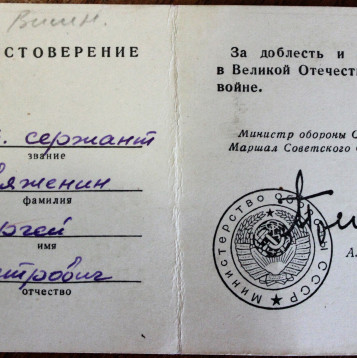 Винн.
СТОВЕРЕНИЕ
. сержант
звание
яженин
фамилия
ргей
имя
трович
отчество
За доблесть и
в Великой Отечест
войне.
Министр обороны С
Маршал Советского С
МИНИСТЕРСТВО ОБОРОНЫ СССР
А.